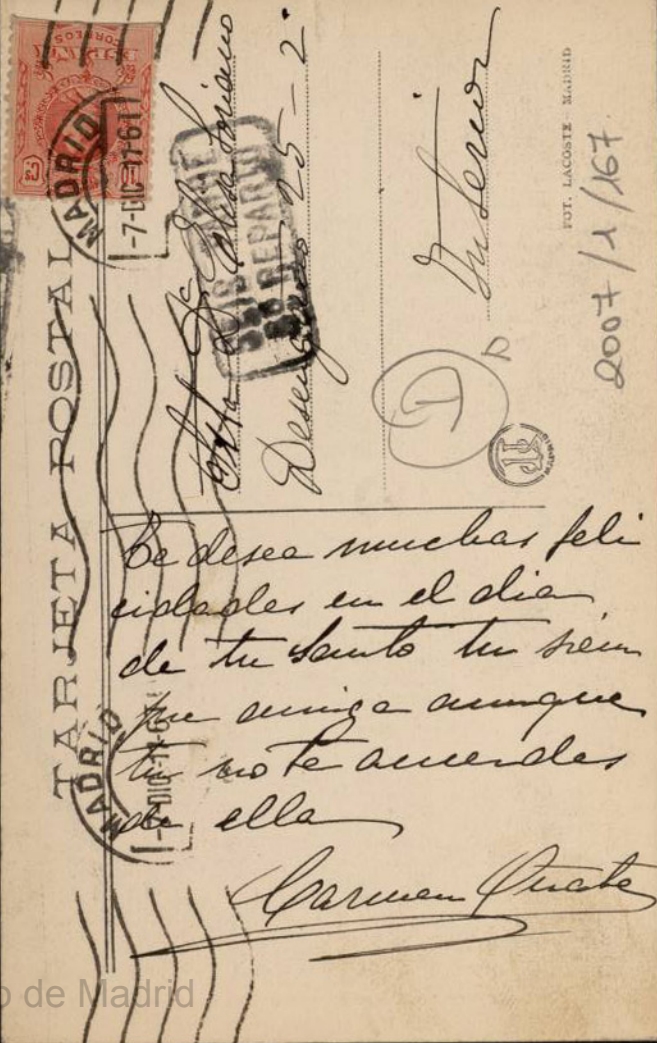 TARJETA POSTAL
CORREOS
MADRID
-7-DIC-11-6T
Srta Dª Luisa Soriano
Desengaño 25-2º
Interior
FOT. LACOSTE - MADRID
2007/1/167
Te desea muchas feli
cidades en el dia
de tu Santo tu siem
pre amiga aunque
tu no te acuerdes
de ella
Carmen Oñate
MADRID
de Madrid